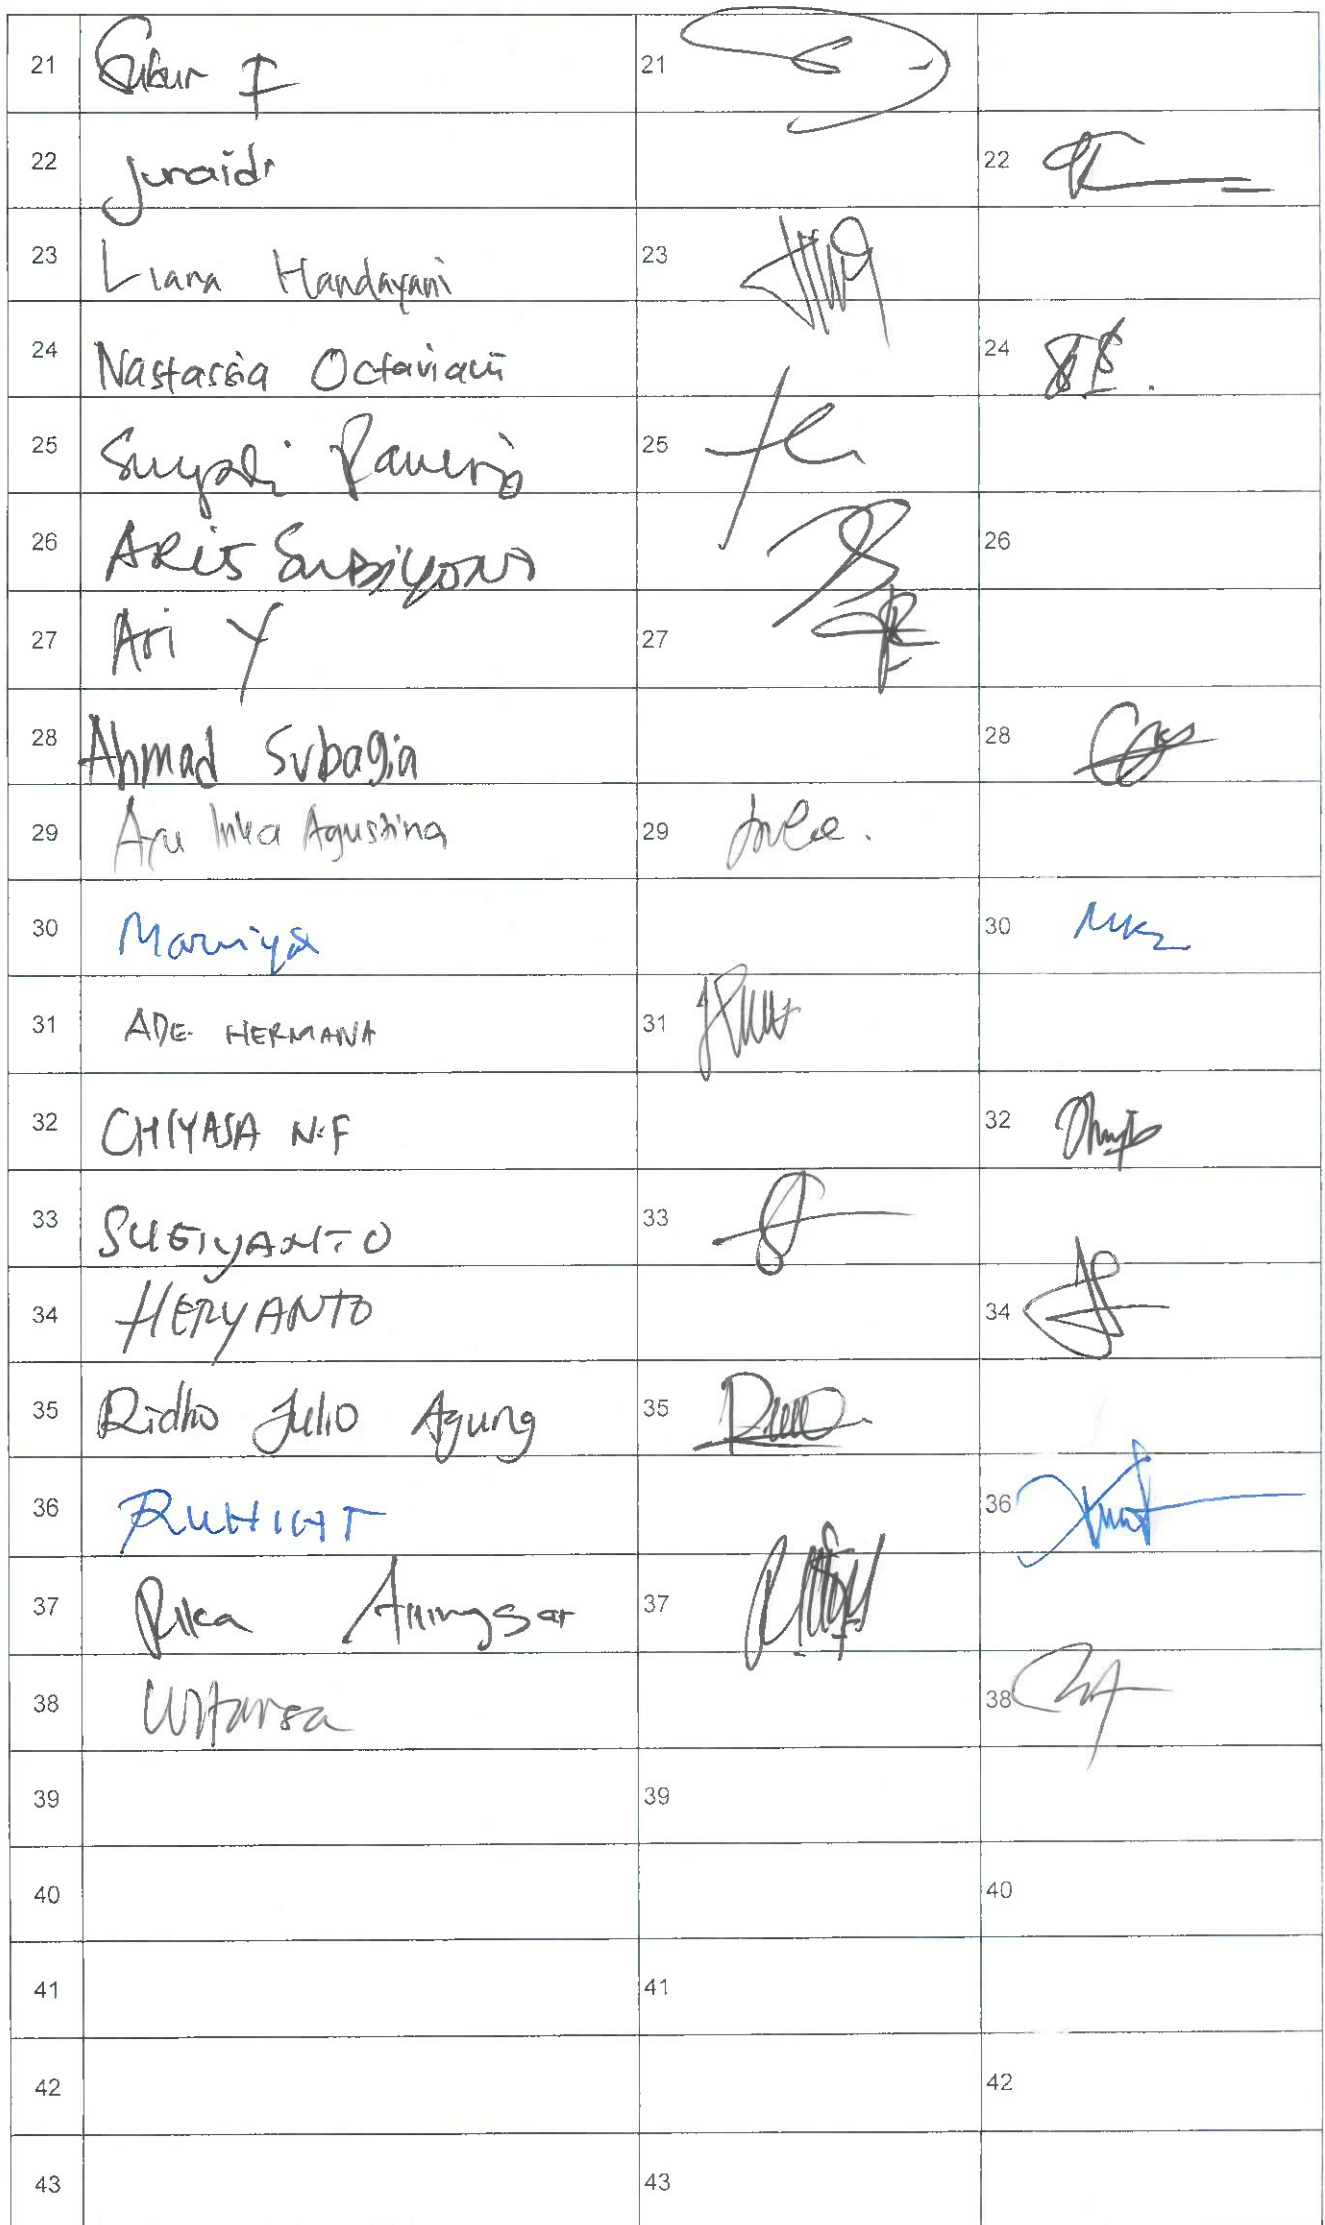 21 Subur I 21
22 Junaidi 22
23 Liana Handayani 23
24 Nastassia Octaviani 24
25 Suyadi 25
26 ARIS SUBIYONO 26
27 Ari Y 27
28 Ahmad Subagia 28
29 Ayu Inka Agustina 29
30 30
31 ADE HERMANA 31
32 CHIYASA N.F 32
33 SUGIYANTO 33
34 HERYANTO 34
35 Ridho Julio Agung 35
36 RUHIYAT 36
37 Rika 37
38 Witarsa 38
39 39
40 40
41 41
42 42
43 43